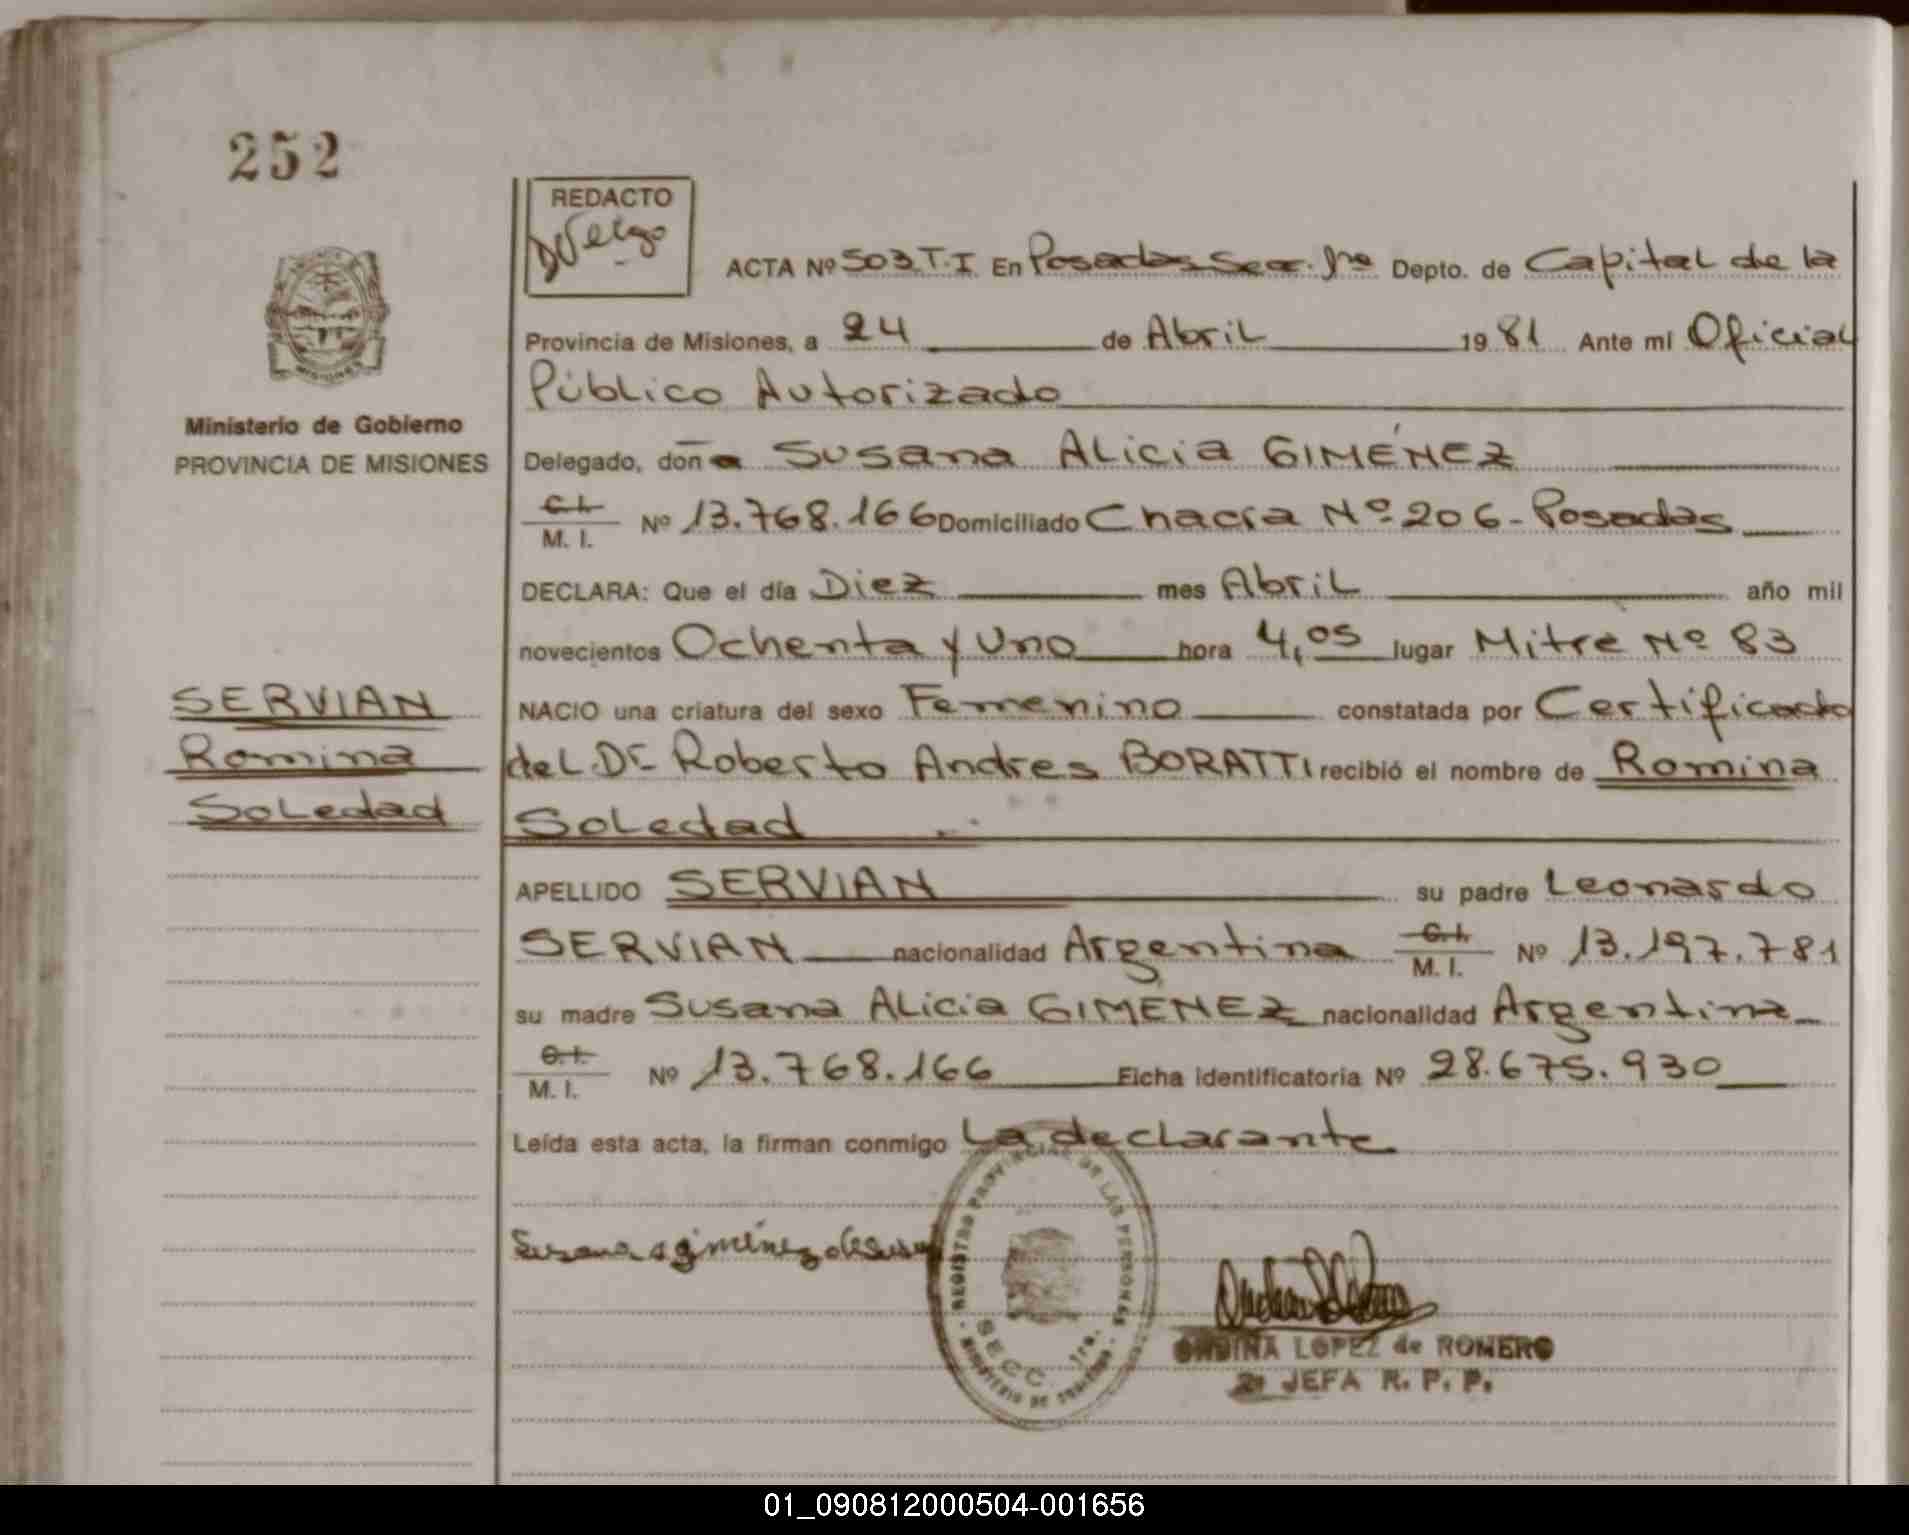 252
REDACTO
ACTA Nº 503.T.I En Posadas Sec. 1ra Depto. de Capital de la
Provincia de Misiones, a 24 de Abril 1981 Ante mi Oficial
Público Autorizado
Ministerio de Gobierno
PROVINCIA DE MISIONES
Delegado, doña Susana Alicia GIMÉNEZ
C.I.
M. I. Nº 13.768.166 Domiciliado Chacra Nº 206 - Posadas
DECLARA: Que el día Diez mes Abril año mil
novecientos Ochenta y Uno hora 4,05 lugar Mitre Nº 83
NACIO una criatura del sexo Femenino constatada por Certificado
del Dr Roberto Andres BORATTI recibió el nombre de Romina
Soledad
SERVIAN
Romina
Soledad
APELLIDO SERVIAN su padre Leonardo
SERVIAN nacionalidad Argentina C.I. M. I. Nº 13.197.781
su madre Susana Alicia GIMENEZ nacionalidad Argentina
C.I.
M. I. Nº 13.768.166 Ficha identificatoria Nº 28.675.930
Leída esta acta, la firman conmigo La declarante
Susana a giménez de
REGISTRO PROVINCIAL DE LAS PERSONAS
SECC. 1ra.
MINISTERIO DE GOBIERNO
ONDINA LOPEZ de ROMERO
2ª JEFA R. P. P.
01_090812000504-001656